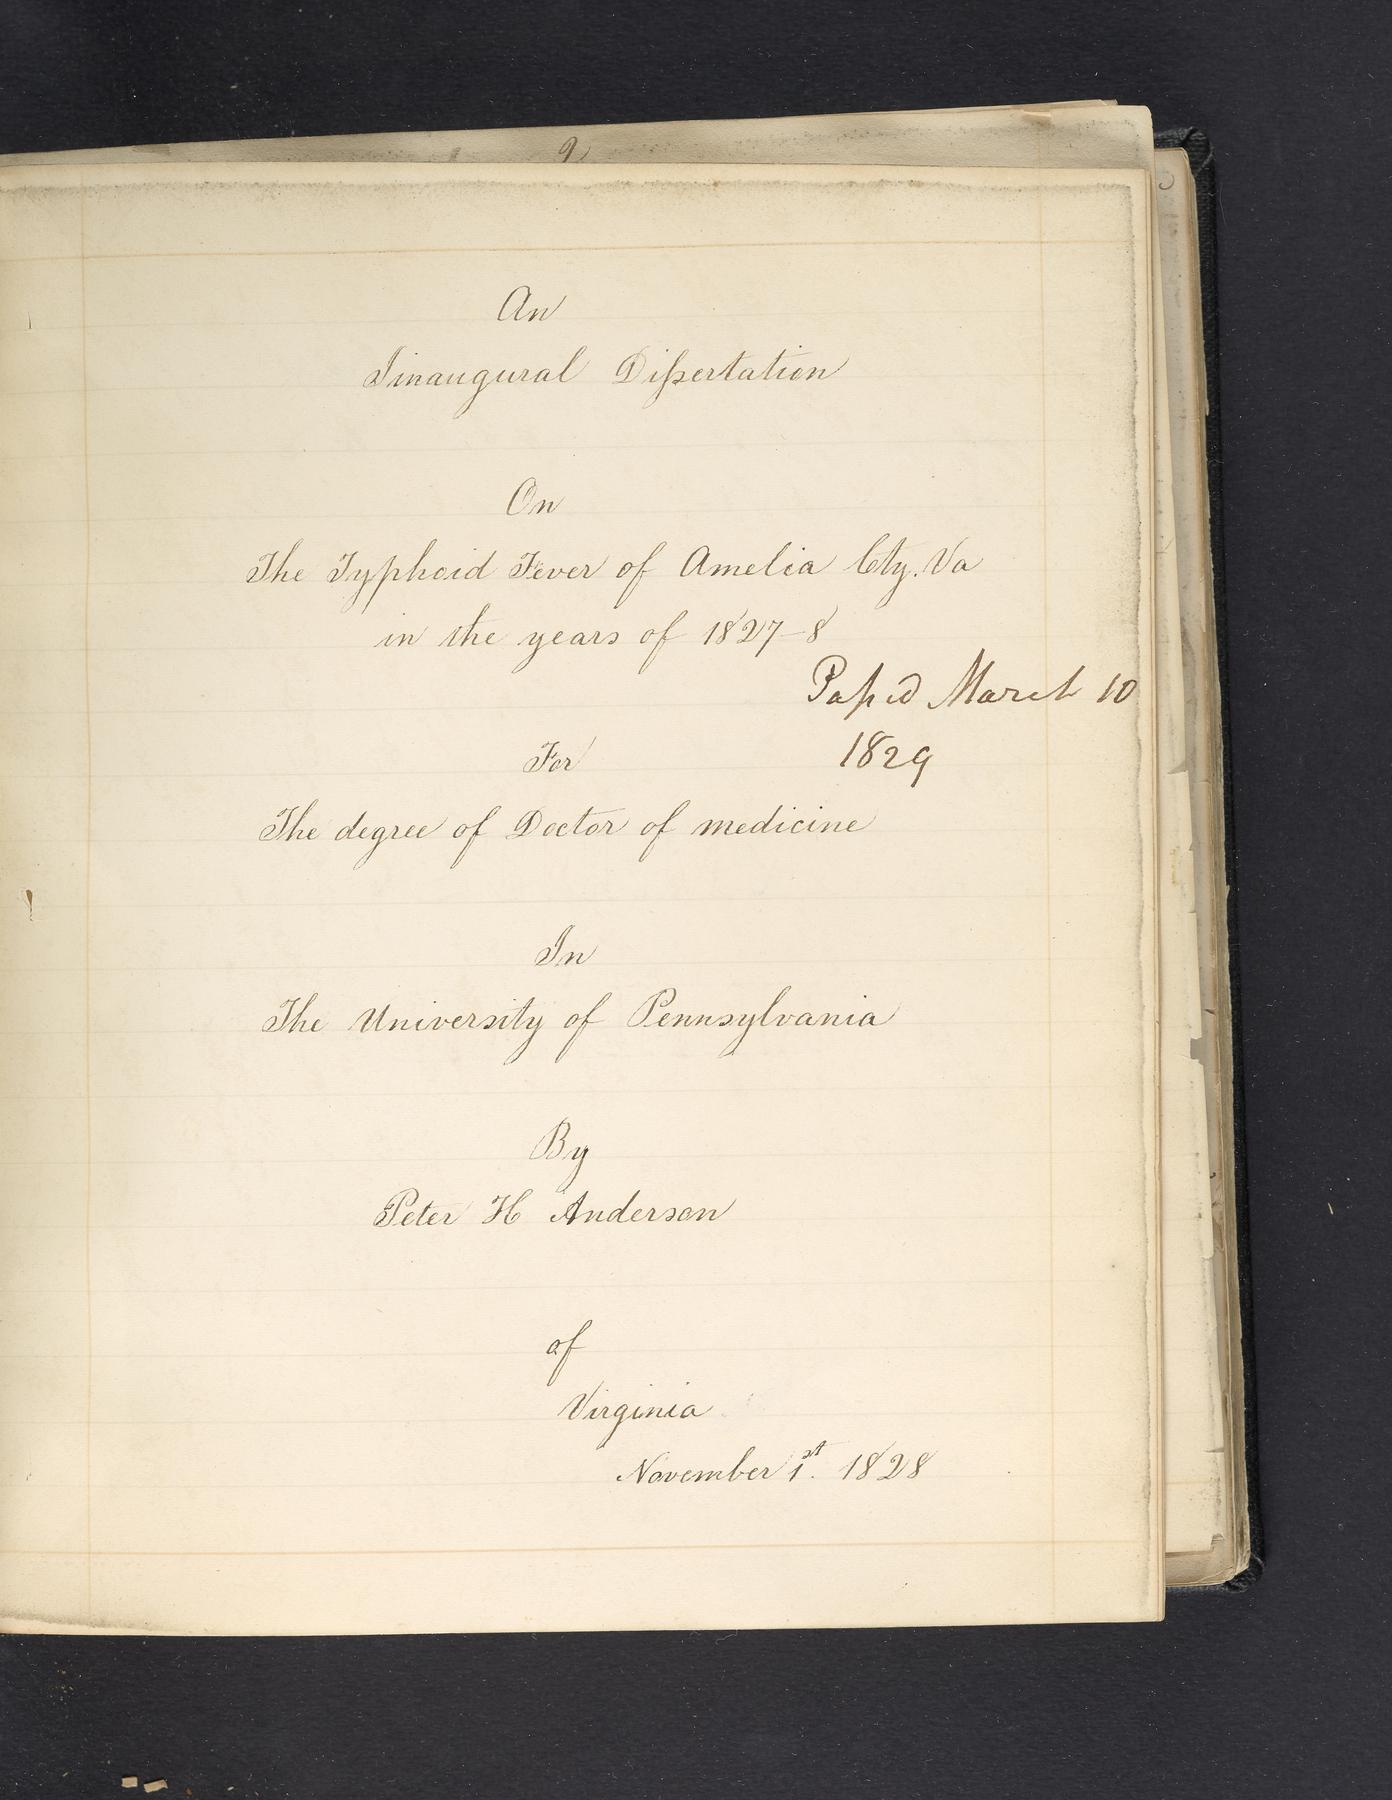 9
An
Inaugural Dissertation
On
The Typhoid Fever of Amelia Cty. Va
in the years of 1827–8
Passed March 10
1829
For
The degree of Doctor of medicine
In
The University of Pennsylvania
By
Peter H Anderson
of
Virginia
November 1st. 1828